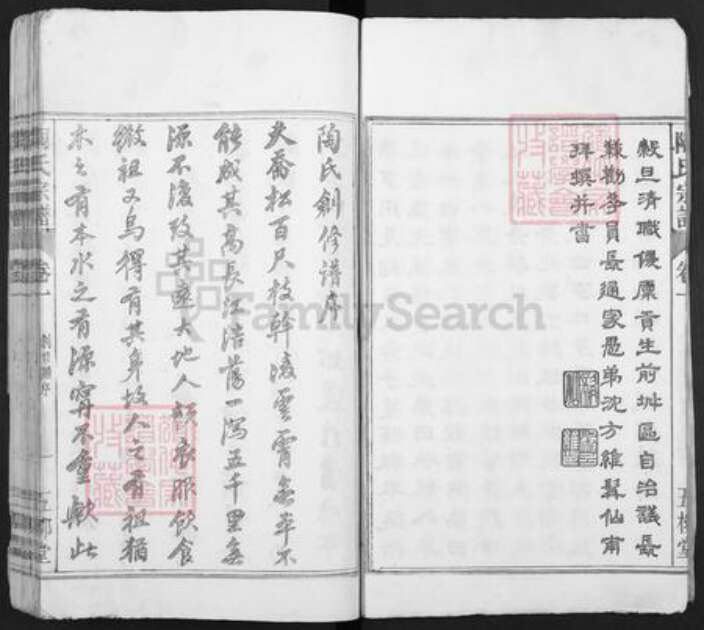 穀旦清職優廩貢生前圳區自治議長
兼勸學員長通家愚弟沈方維賢仙甫
拜撰并書
陶氏宗譜
卷一
五柳堂
陶氏創修譜序
夫喬松百尺枝幹凌雲霄無本不
能成其高長江浩蕩一瀉五千里無
源不濬致其遠大地人類衣服飲食
微祖又烏得有其身故人之有祖猶
木之有本水之有源寧不重歟此
陶氏宗譜
卷一
五柳堂
FamilySearch